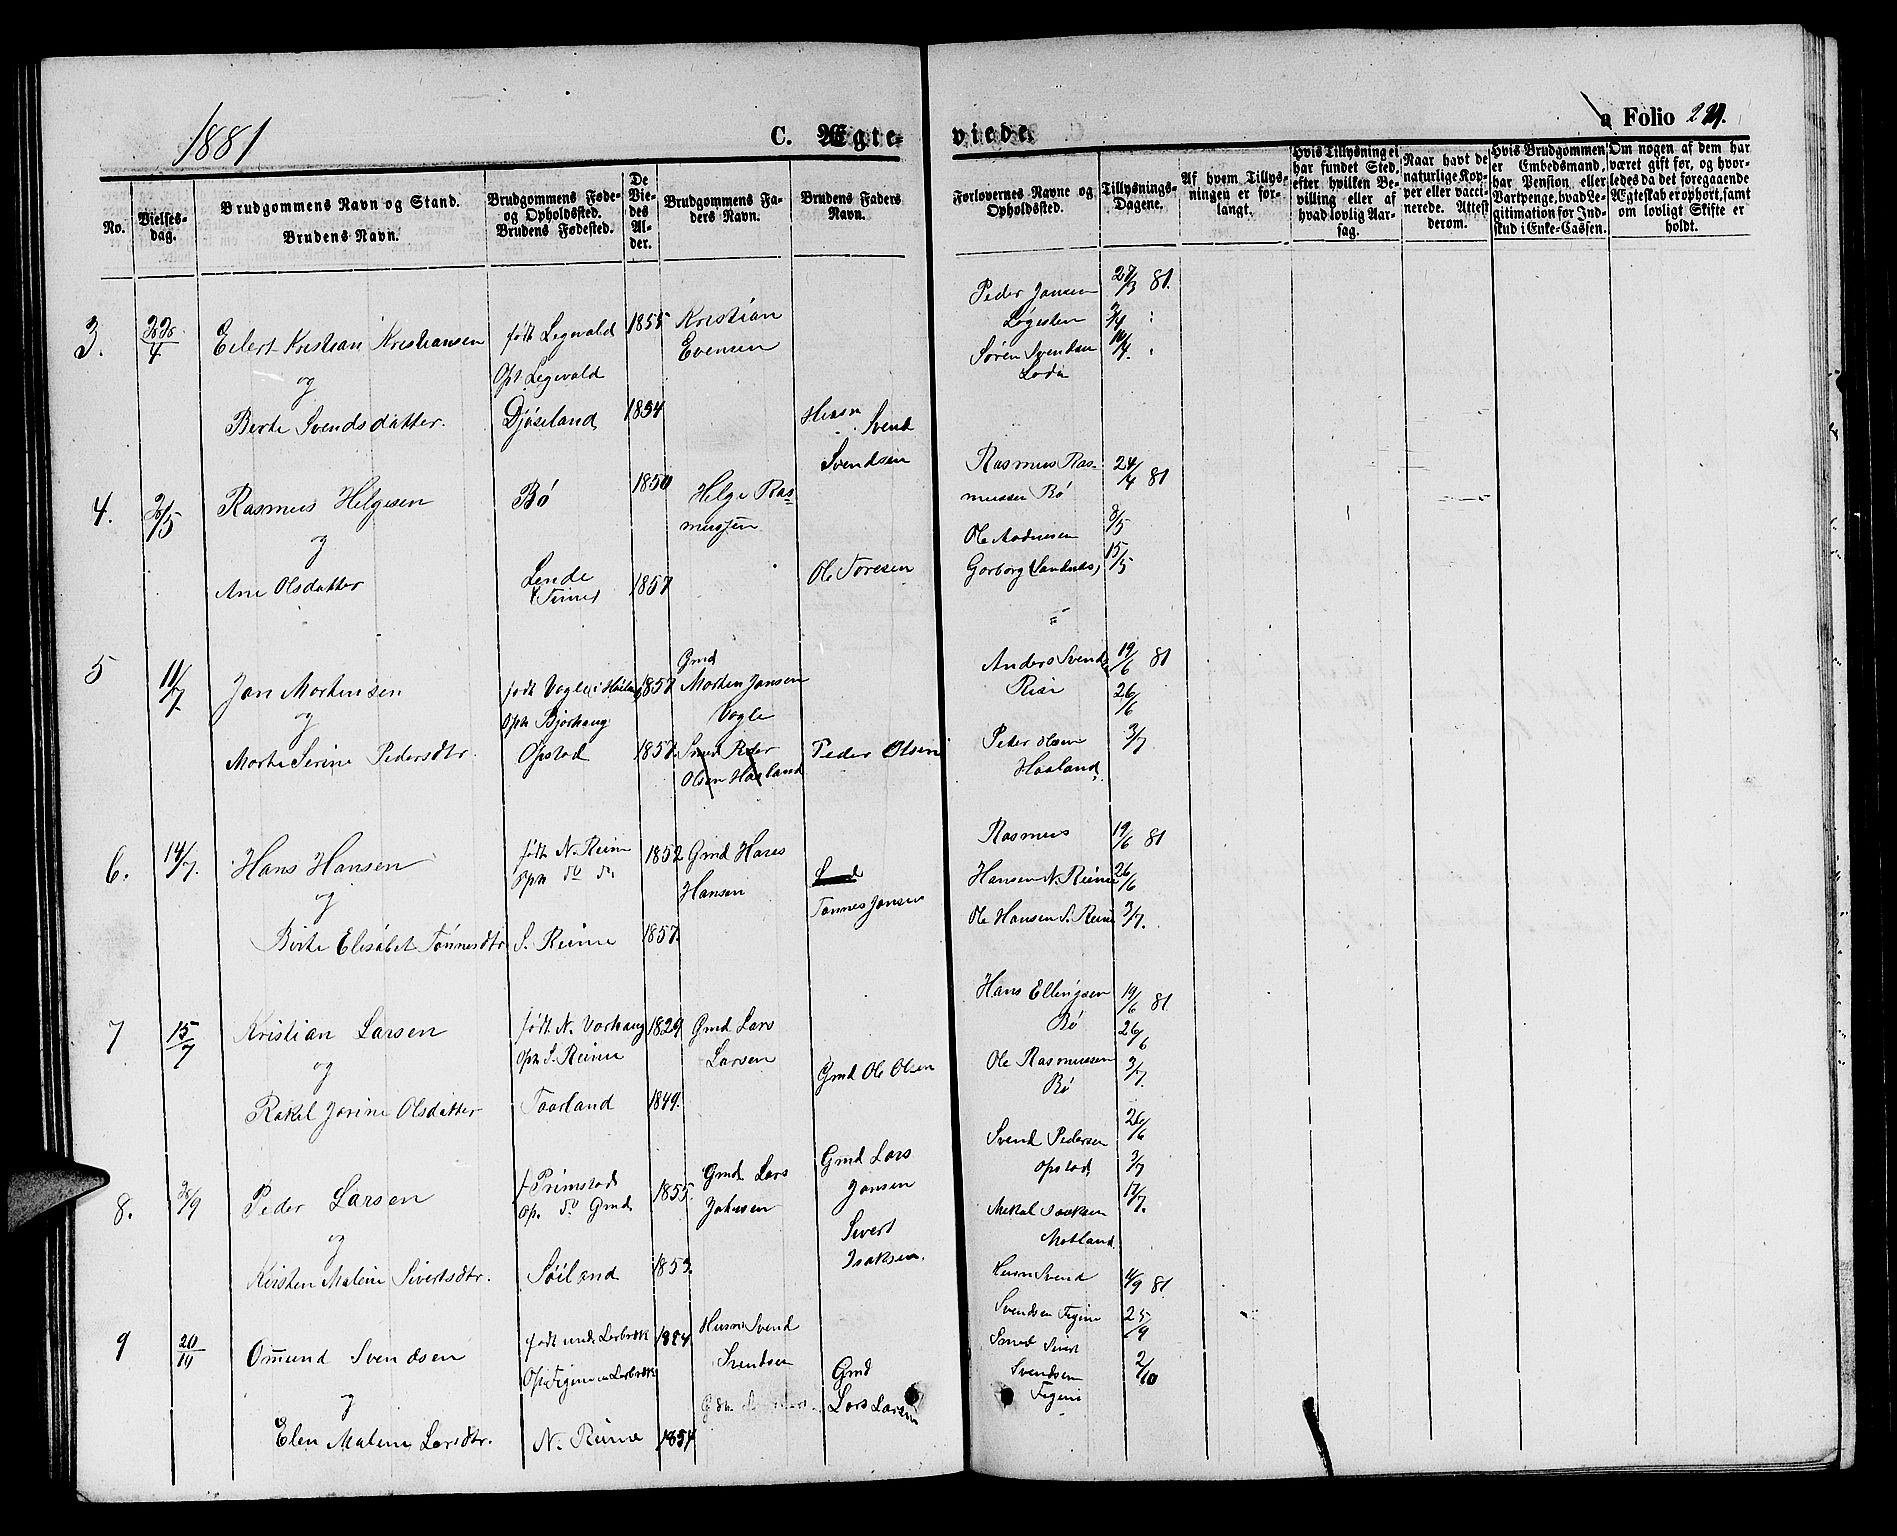 1881
C. Ægte- viede.
a Folio 229.
No.
Vielses-
dag.
Brudgommens Navn og Stand.
Brudens Navn.
Brudgommens Føde-
og Opholdssted.
Brudens Fødested.
De
Vie-
des
Al-
der.
Brudgommens Fa-
ders Navn.
Brudens Faders
Navn.
Forlovernes Navne og
Opholdssted.
Tillysnings-
Dagene.
Af hvem Tillys-
ningen er for-
langt.
Hvis Tillysning ei
har fundet Sted,
efter hvilken Be-
villing eller af
hvad lovlig Aar-
sag.
Naar havt de
naturlige Kop-
per eller vacci-
nerede. Attest
derom.
Hvis Brudgommen
er Embedsmand,
har Pension eller
Vartpenge, hvad Le-
gitimation for Ind-
skud i Enke-Cassen.
Om nogen af dem har
været gift før, og hvor-
ledes da det foregaaende
Ægteskab er ophørt, samt
om lovligt Skifte er
holdt.
3.
Eilert Kristian Kristiansen
og
Berte Svendsdatter.
født Legevald
Oph Legevald
Djøseland
1855
1854
Kristian
Evensen
Husm
Svend
Svendsen
Peder Jansen
Løgesten
Søren Svendsen
Loda
27/3 81.
3/4
10/4
4.
Rasmus Helgesen
og
Ane Olsdatter
Bø
Lende
i Time
1850
1857
Helge Ras-
mussen
Ole Toresen
Rasmus Ras-
mussen Bø
Ole Aadnesen
Garborg (Sandnes)
24/4 81
8/5
15/5
5
11/7
Jan Mortensen
og
Marte Serine Pedersdtr.
født Vagle i Høiland
Oph Bjorhaug
Opstad
1857
1857
Gmd
Morten Jansen
Vagle
Smed Peder
Olsen Haaland
Peder Olsen
Anders Svends
Riar
Peder Olsen
Haaland.
19/6 81
26/6
3/7
6.
14/7.
Hans Hansen
og
Berte Elisabet Tønnesdtr.
født N. Reime
Oph do do.
S. Reime
1852
1857.
Gmd Hans
Hansen
Tønnes Jansen
Rasmus
Hansen N. Reime
Ole Hansen S. Reime
19/6 81
26/6
3/7.
7
15/7
Kristian Larsen
og
Rakel Jorine Olsdatter
født N. Varhaug
Oph S. Reime
Taarland
1829
1849.
Gmd Lars
Larsen
Gmd Ole Olsen
Hans Ellingsen
Bø
Ole Rasmussen
Bø
19/6 81
26/6
3/7.
8.
Peder Larsen
og
Kristen Malene Sivertsdtr.
f. Primstad
Op. do Gmd
Søiland
1855.
1853.
Gmd Lars
Johnsen
Gmd Lars
Jansen
Sivert
Isaksen.
Svend Pedersen
Opstad
Mikal Isaksen
Motland.
26/6
3/7
17/7.
9
Omund Svendsen
og
Elen Malene Larsdtr.
født und. Lerbræk
Op. Figene u Lerbræk
N. Reime
1854
1854
Husm Svend
Svendsen
Gmd
Lars Larsen
Husm Svend
Svendsen Figene
Smed Sivert
Svendsen
Figene
4/9 81
25/9
2/10